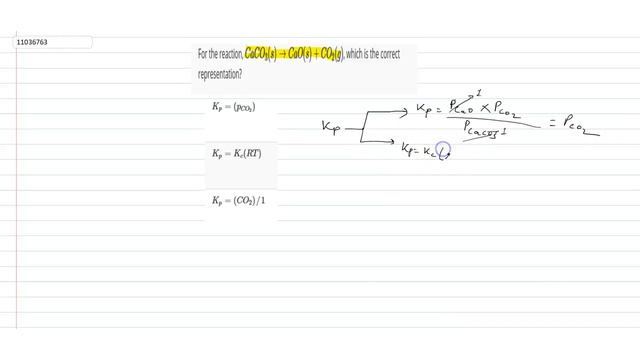 11036763
For the reaction, CaCO₃(s) → CaO(s) + CO₂(g), which is the correct
representation?
K_p = (p_CO₂)
K_p = K_c(RT)
K_p = (CO₂)/1
K_p
K_p = P_CaO × P_CO₂ / P_CaCO₃ = P_CO₂
1
1
K_p = K_c (